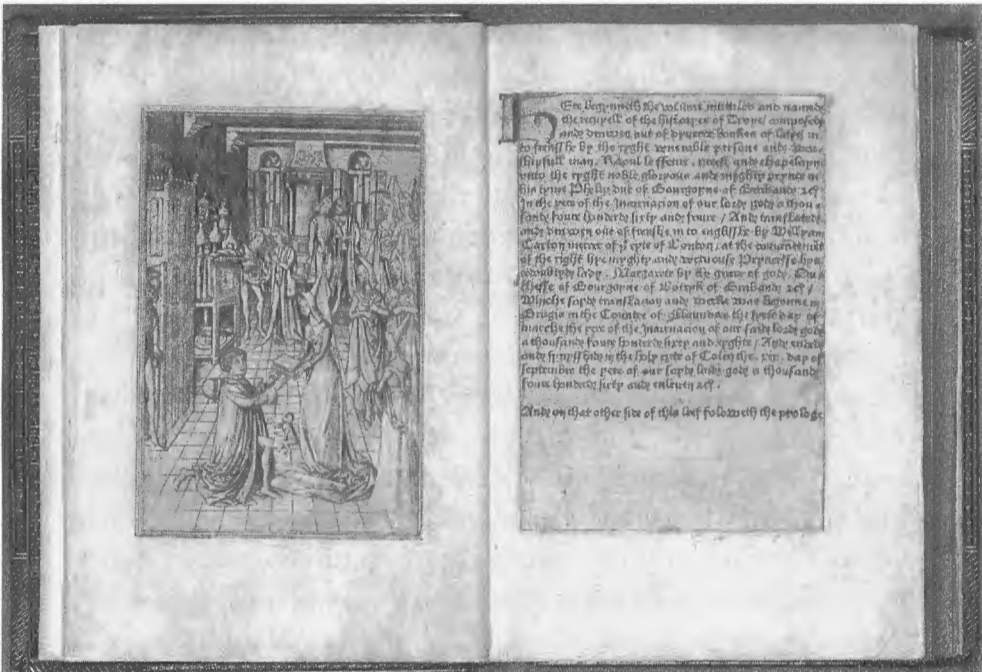 HEre begynneth the volume intituled and named
the recuyell of the historyes of Troye / composed
and drawen out of dyuerce bookes of latyn in
to frensshe by the ryght venerable persone and wor-
shipfull man . Raoul le ffeure . preest and chapelayn
vnto the ryght noble gloryous and myghty prynce in
his tyme Phelip duc of Bourgoyne of Braband etc
In the yere of the Incarnacion of our lord god a thou-
sand foure honderd sixty and foure / And translated
and drawen out of frenshe in to englisshe by Willyam
Caxton mercer of ye cyte of London / at the comaundemēt
of the right hye myghty and vertuouse Pryncesse hys
redoubtyd lady . Margarete by the grace of god . Du-
chesse of Bourgoyne of Lotryk of Braband etc /
Whiche sayd translacion and werke was begonne in
Brugis in the Countee of Flaundres the fyrst day of
marche the yere of the Incarnacion of our said lord god
a thousand foure honderd sixty and eyghte / And ended
and fynysshid in the holy cyte of Colen the . xix . day of
septembre the yere of our sayd lord god a thousand
foure honderd sixty and enleuen etc .
And on that other side of this leef foloweth the prologe